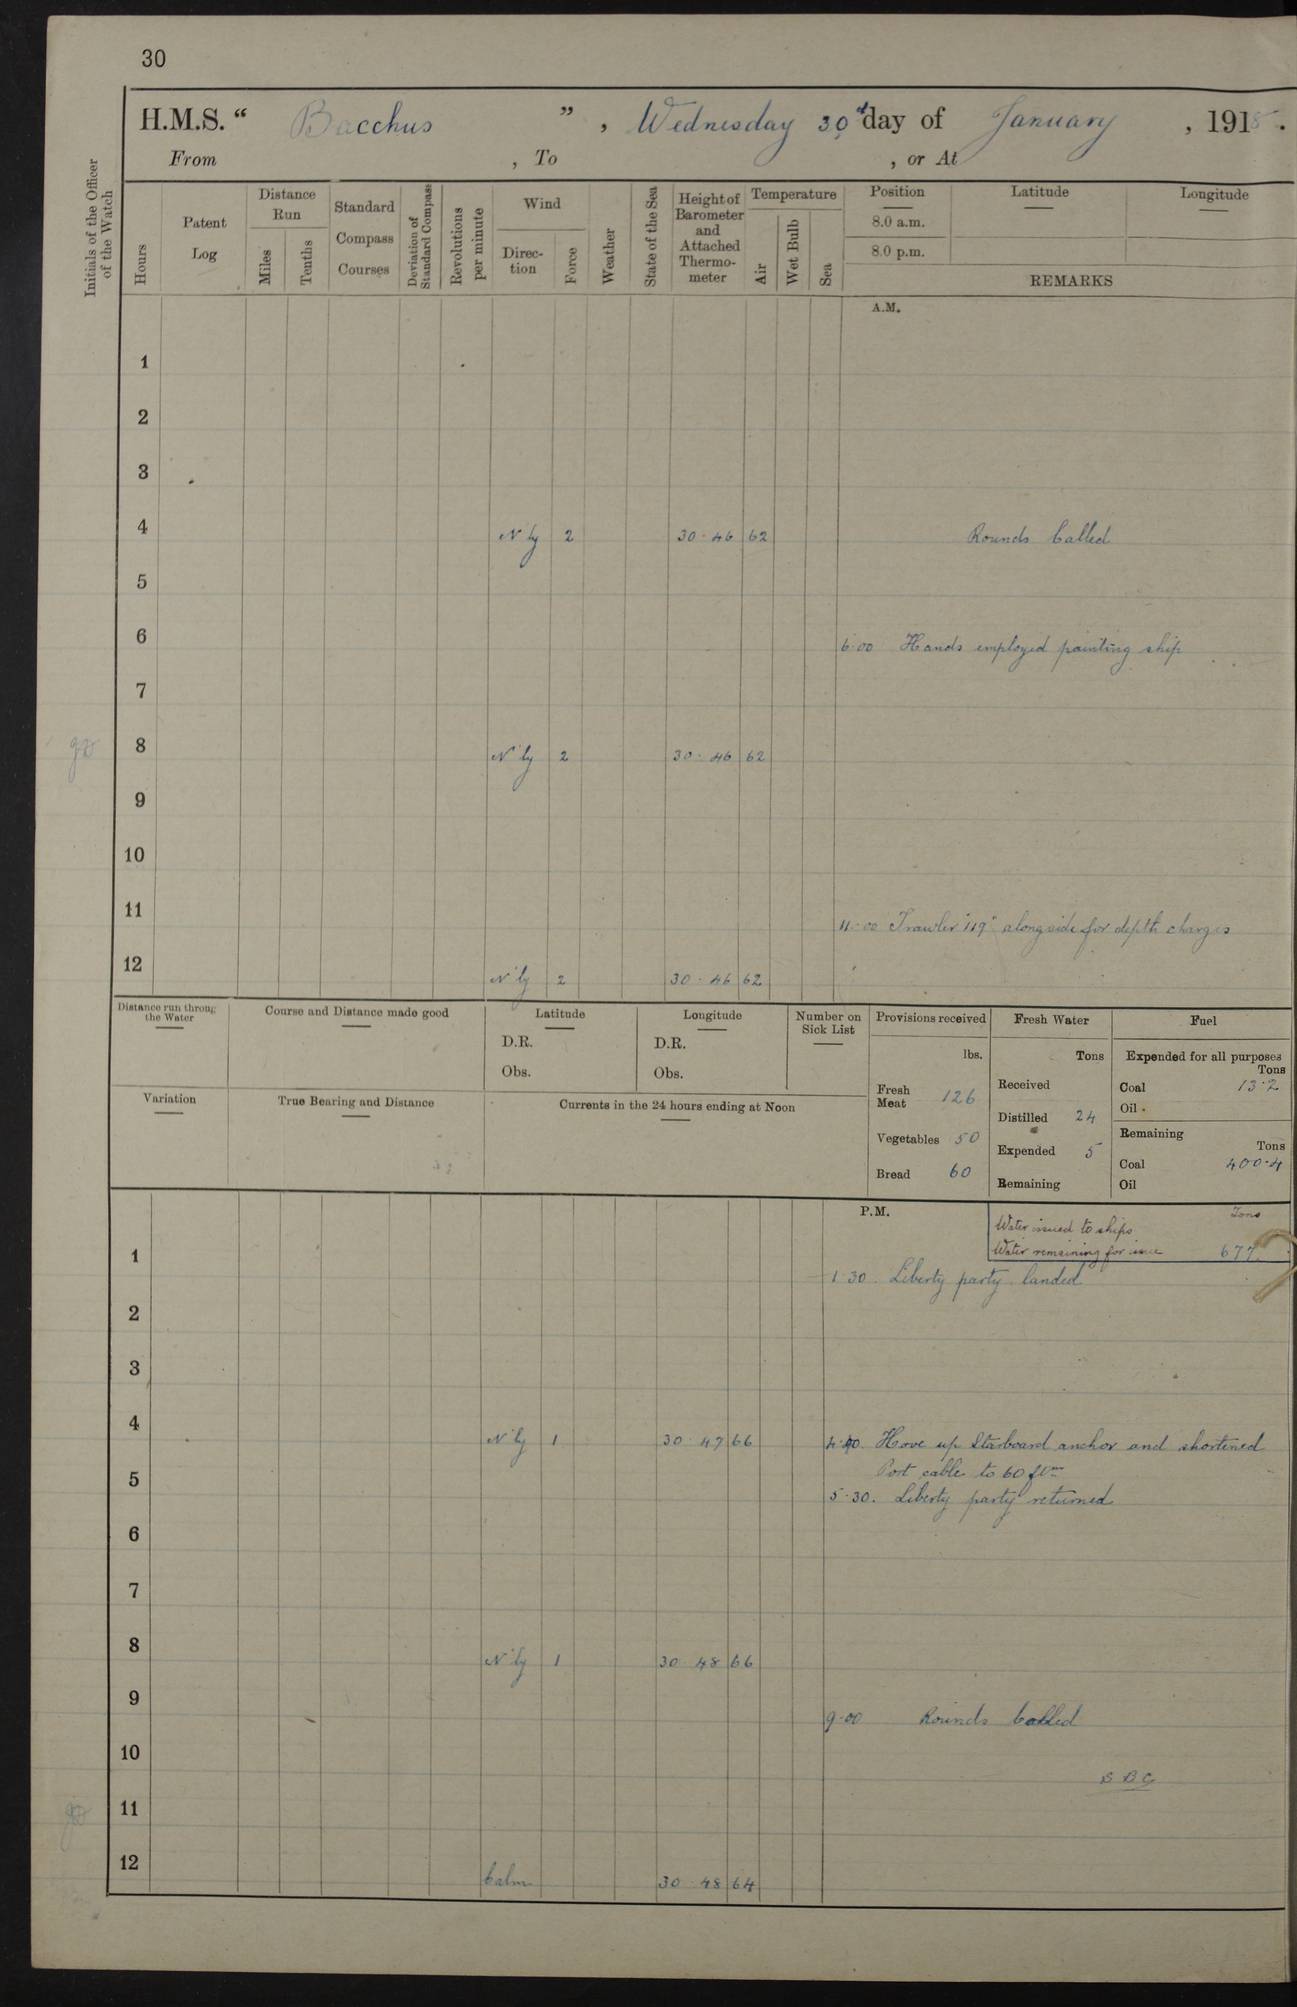 30
H.M.S. “ Bacchus ” , Wednesday 30 day of January , 1918.
From , To , or At
Initials of the Officer of the Watch
Hours
Patent Log
Distance Run
Miles
Tenths
Standard Compass Courses
Deviation of Standard Compass
Revolutions per minute
Wind
Direction
Force
Weather
State of the Sea
Height of Barometer and Attached Thermometer
Temperature
Air
Wet Bulb
Sea
Position Latitude Longitude
8.0 a.m.
8.0 p.m.
REMARKS
A.M.
1
2
3
4 N'ly 2 30.46 62 Rounds Called
5
6 6.00 Hands employed painting ship
7
8 N'ly 2 30.46 62
9
10
11 11.00 Trawler "119" alongside for depth charges
12 N'ly 2 30.46 62
Distance run throug the Water
Course and Distance made good
Latitude
D.R.
Obs.
Longitude
D.R.
Obs.
Number on Sick List
Variation
True Bearing and Distance
Currents in the 24 hours ending at Noon
Provisions received
lbs.
Fresh Meat 126
Vegetables 50
Bread 60
Fresh Water
Tons
Received
Distilled 24
Expended 5
Remaining
Fuel
Expended for all purposes
Tons
Coal 13.2
Oil
Remaining
Tons
Coal 400.4
Oil
P.M.
Tons
Water issued to ships
Water remaining for issue 677
1 1.30. Liberty party landed
2
3
4 N'ly 1 30.47 66 Hove up Starboard anchor and shortened
Port cable to 60 fms
5 5.30. Liberty party returned
6
7
8 N'ly 1 30.48 66
9 9.00 Rounds Called
10
B B C
11
12 Calm 30.48 64